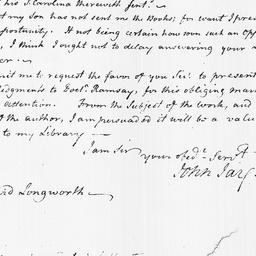 his S. Carolina therewith sent.
t my Son has not sent me the Books; for want I pres
portunity. It not being certain how soon such an opp
, I think I ought not to delay answering your
er.
mit me to request the favor of you Sir! to present
ledgments to Doctr. Ramsay, for this obliging mar
attention. From the Subject of the work, and
the author, I am persuaded it will be a valu
to my Library —
I am Sir
your obedt. Servt.
John Jay
id Longworth